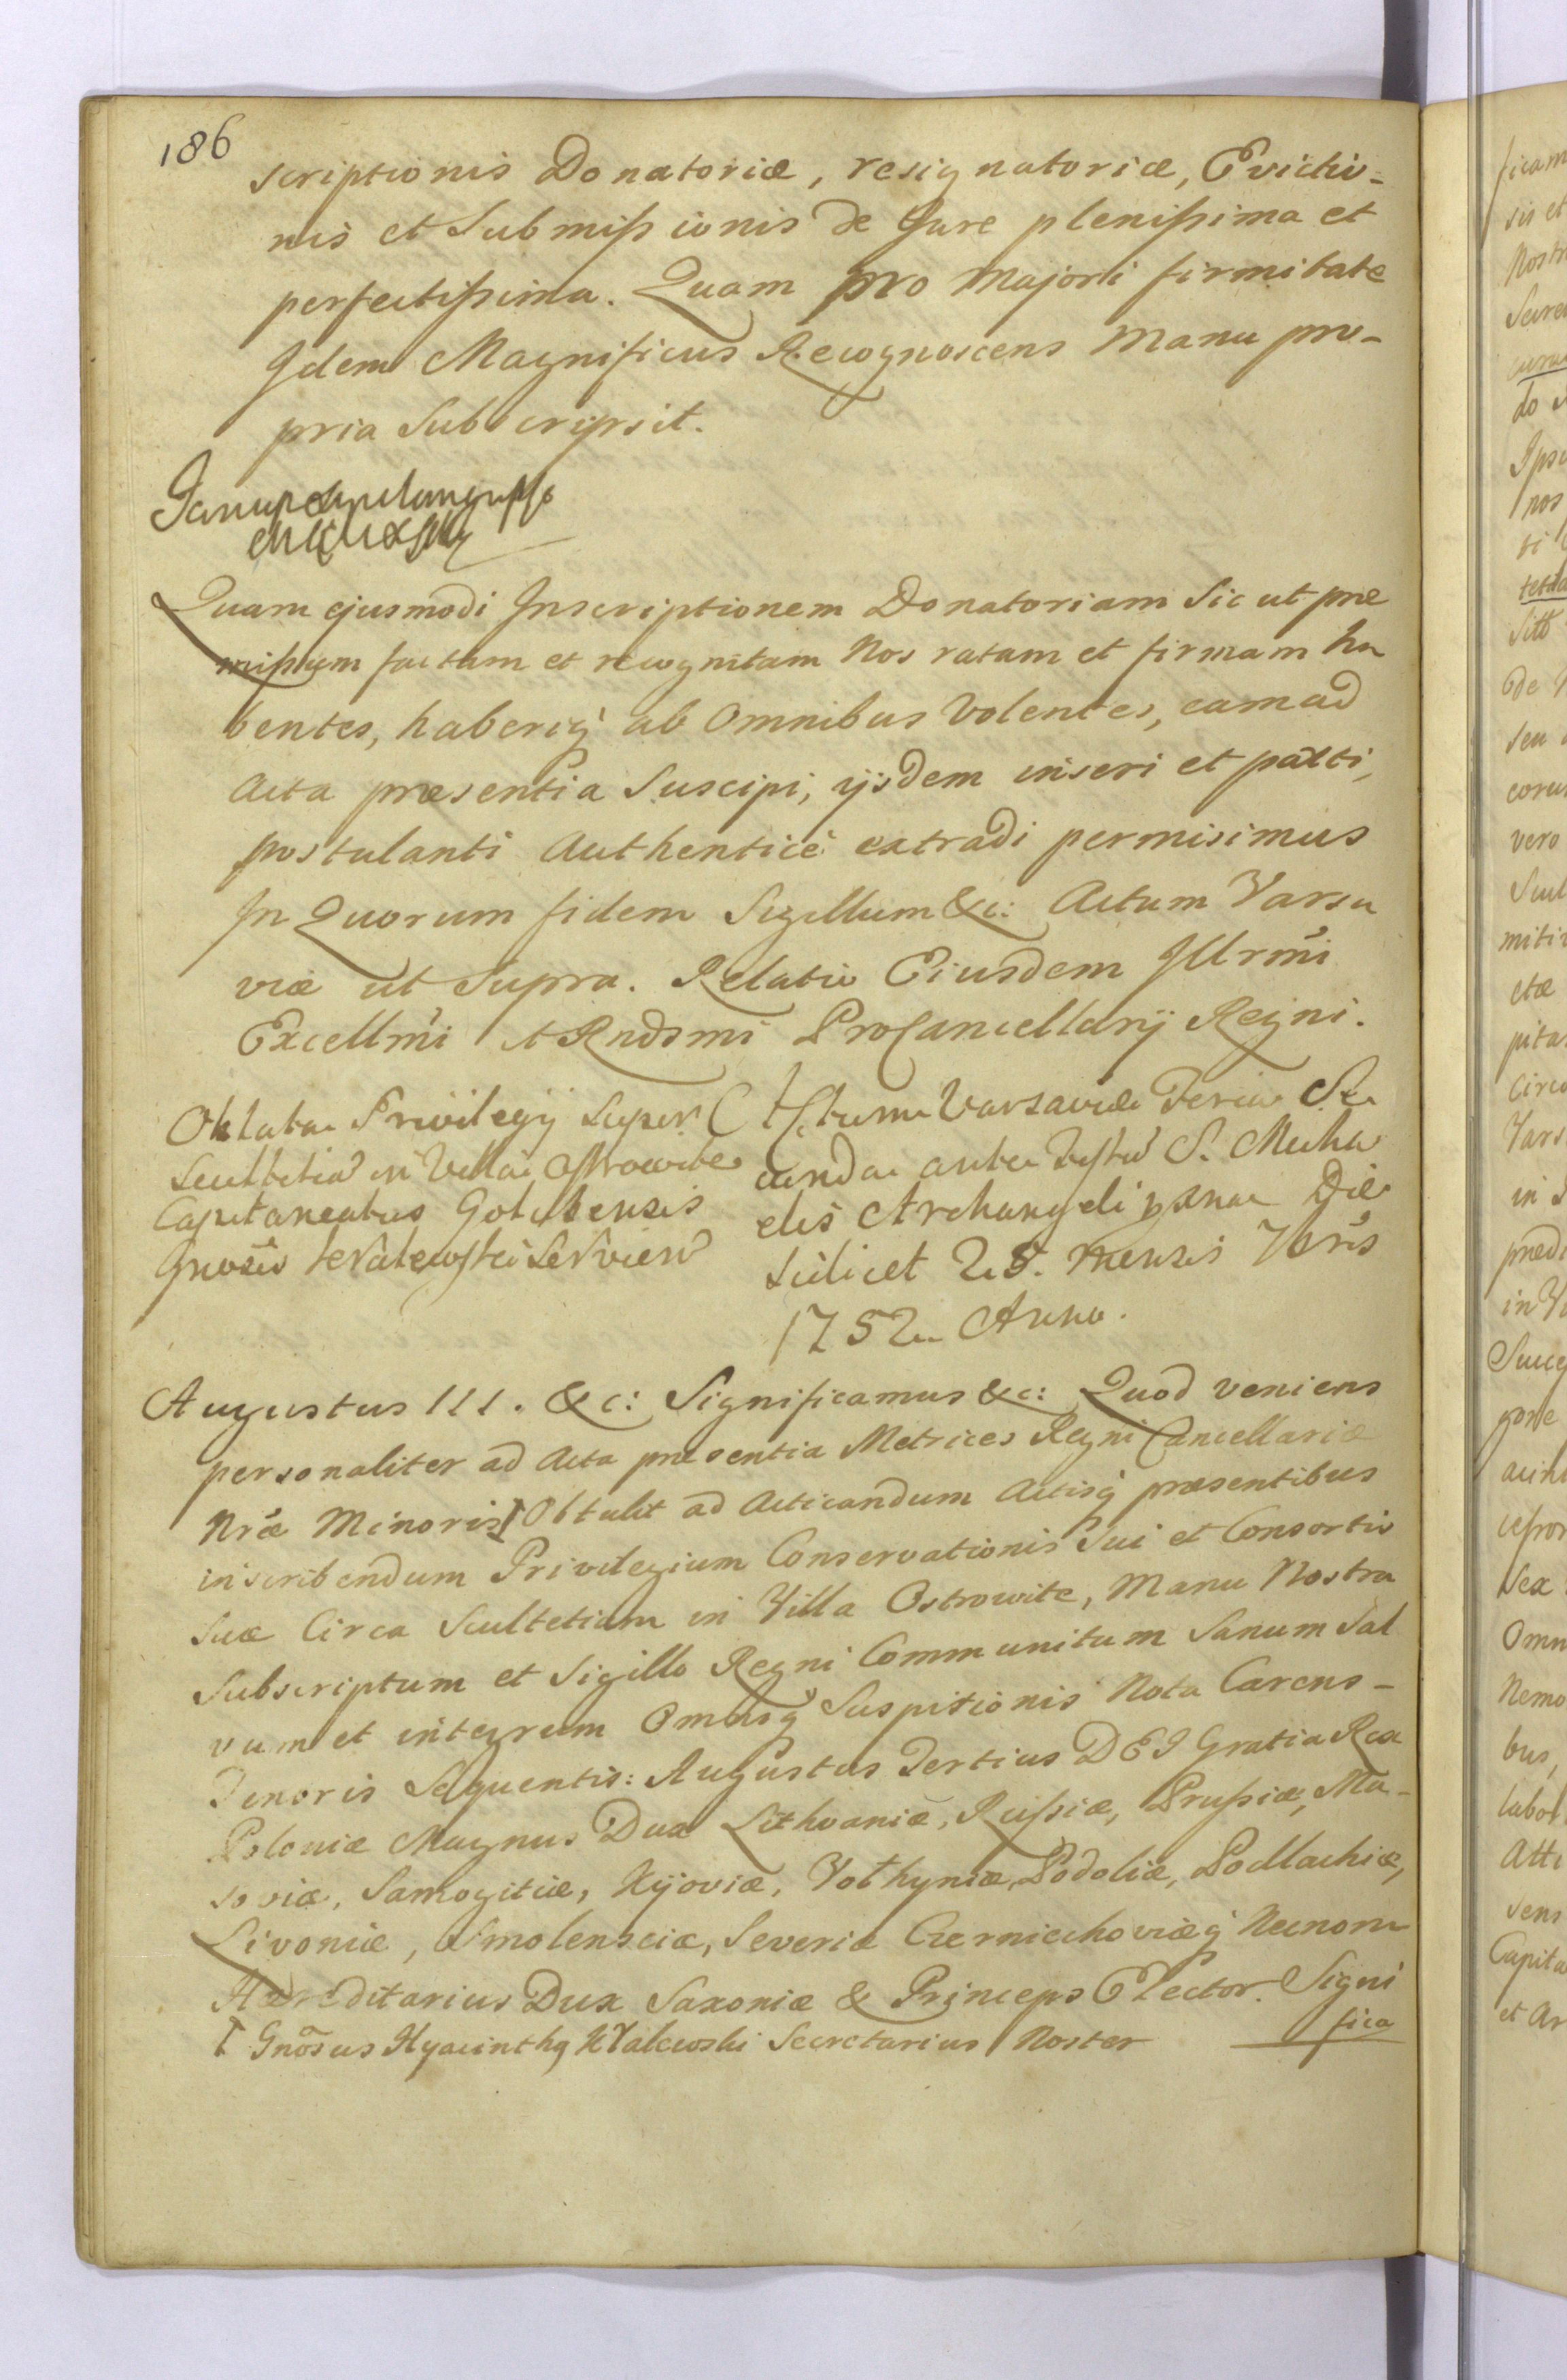 186
scriptionis Donatoriæ, resignatoriæ, Evictio-
nis et Submissionis de Jure plenissima et
perfectissima. Quam pro Majori firmitate
Idem Magnificus Recognoscens Manu pro-
pria Subscripsit.
Quam ejusmodi Inscriptionem Donatoriam Sic ut præ
missum factam et recognitam Nos ratam et firmam ha
bentes, haberiq; ab Omnibus Volentes, eam ad
Acta præsentia Suscipi, ijsdem inseri et parti,
postulanti Authenticè extradi permisimus
In Quorum fidem Sigillum &c: Actum Varsa
viæ ut Supra. Relatio Eiusdem Illrmi
Excellmi et Rndsmi ProCancellarij Regni.
Oblata Privilegij Super
Scultetiā in Villa Ostrowite
Capitaneatus Golubensis
Gnōso Walewski Servien̄
Actum Varsaviæ Feria Se
cunda ante Festū S. Micha
elis Archangeli ipsna Die
Scilicet 25. Mensis 7bris
1752 Anno.
Augustus III. &c: Significamus &c: Quod veniens
personaliter ad Acta præsentia Metrices Regni Cancellariæ
Nræ Minoris Obtulit ad Acticandum Actisq; præsentibus
inscribendum Privilegium Conservationis Sui et Consortis
Suæ Circa Scultetiam in Villa Ostrowite, Manu Nostra
Subscriptum et Sigillo Regni Communitum Sanum Sal
vum et integrum Omniq; Suspitionis Nota Carens-
Tenoris Sequentis: Augustus Tertius DEI Gratia Rex
Poloniæ Magnus Dux Lithvaniæ, Russiæ, Prussiæ, Ma-
soviæ, Samogitiæ, Kijoviæ, Volhyniæ, Podoliæ, Podlachiæ,
Livoniæ, Smolensciæ, Severiæ Czerniechoviæq; Necnon
Hæreditarius Dux Saxoniæ & Princeps Elector. Signi
fica
Gnōsus Hyacinthq Walewski Secretarius Noster